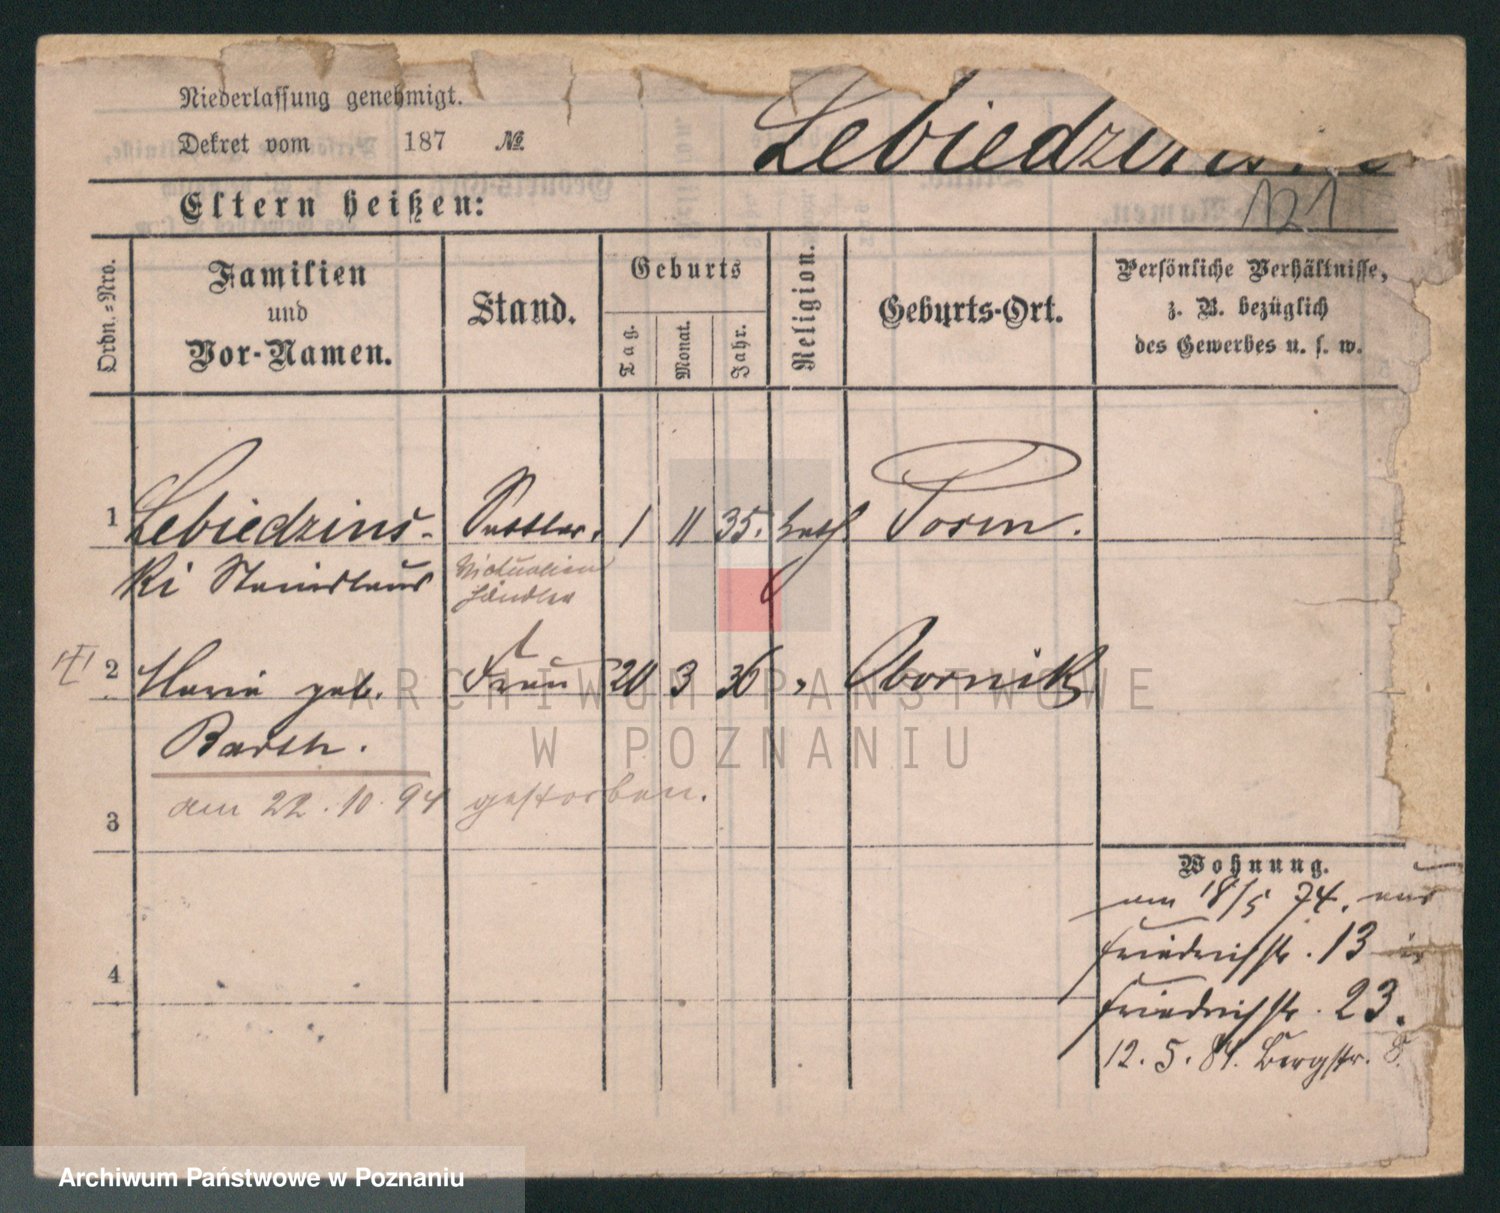 Niederlassung genehmigt.
Dekret vom 187 №
Lebiedzinski
121
Eltern heißen:
Ordn.-Nro.
Familien
und
Vor-Namen.
Stand.
Geburts
Tag.
Monat.
Jahr.
Religion.
Geburts-Ort.
Persönliche Verhältnisse,
z. B. bezüglich
des Gewerbes u. s. w.
1 Lebiedzins- Sattler. 1 11 35. kath Posen.
ki Stanislaus Victualien
händler
2 Maria geb. Frau 20 3 36 " Obornik
Barth.
3 am 22.10.94 gestorben.
4
Wohnung.
am 18/5 74. aus
Friedrichstr. 13 in
Friedrichstr. 23.
12.5.84. Bergstr. 8.
ARCHIWUM PAŃSTWOWE
W POZNANIU
Archiwum Państwowe w Poznaniu